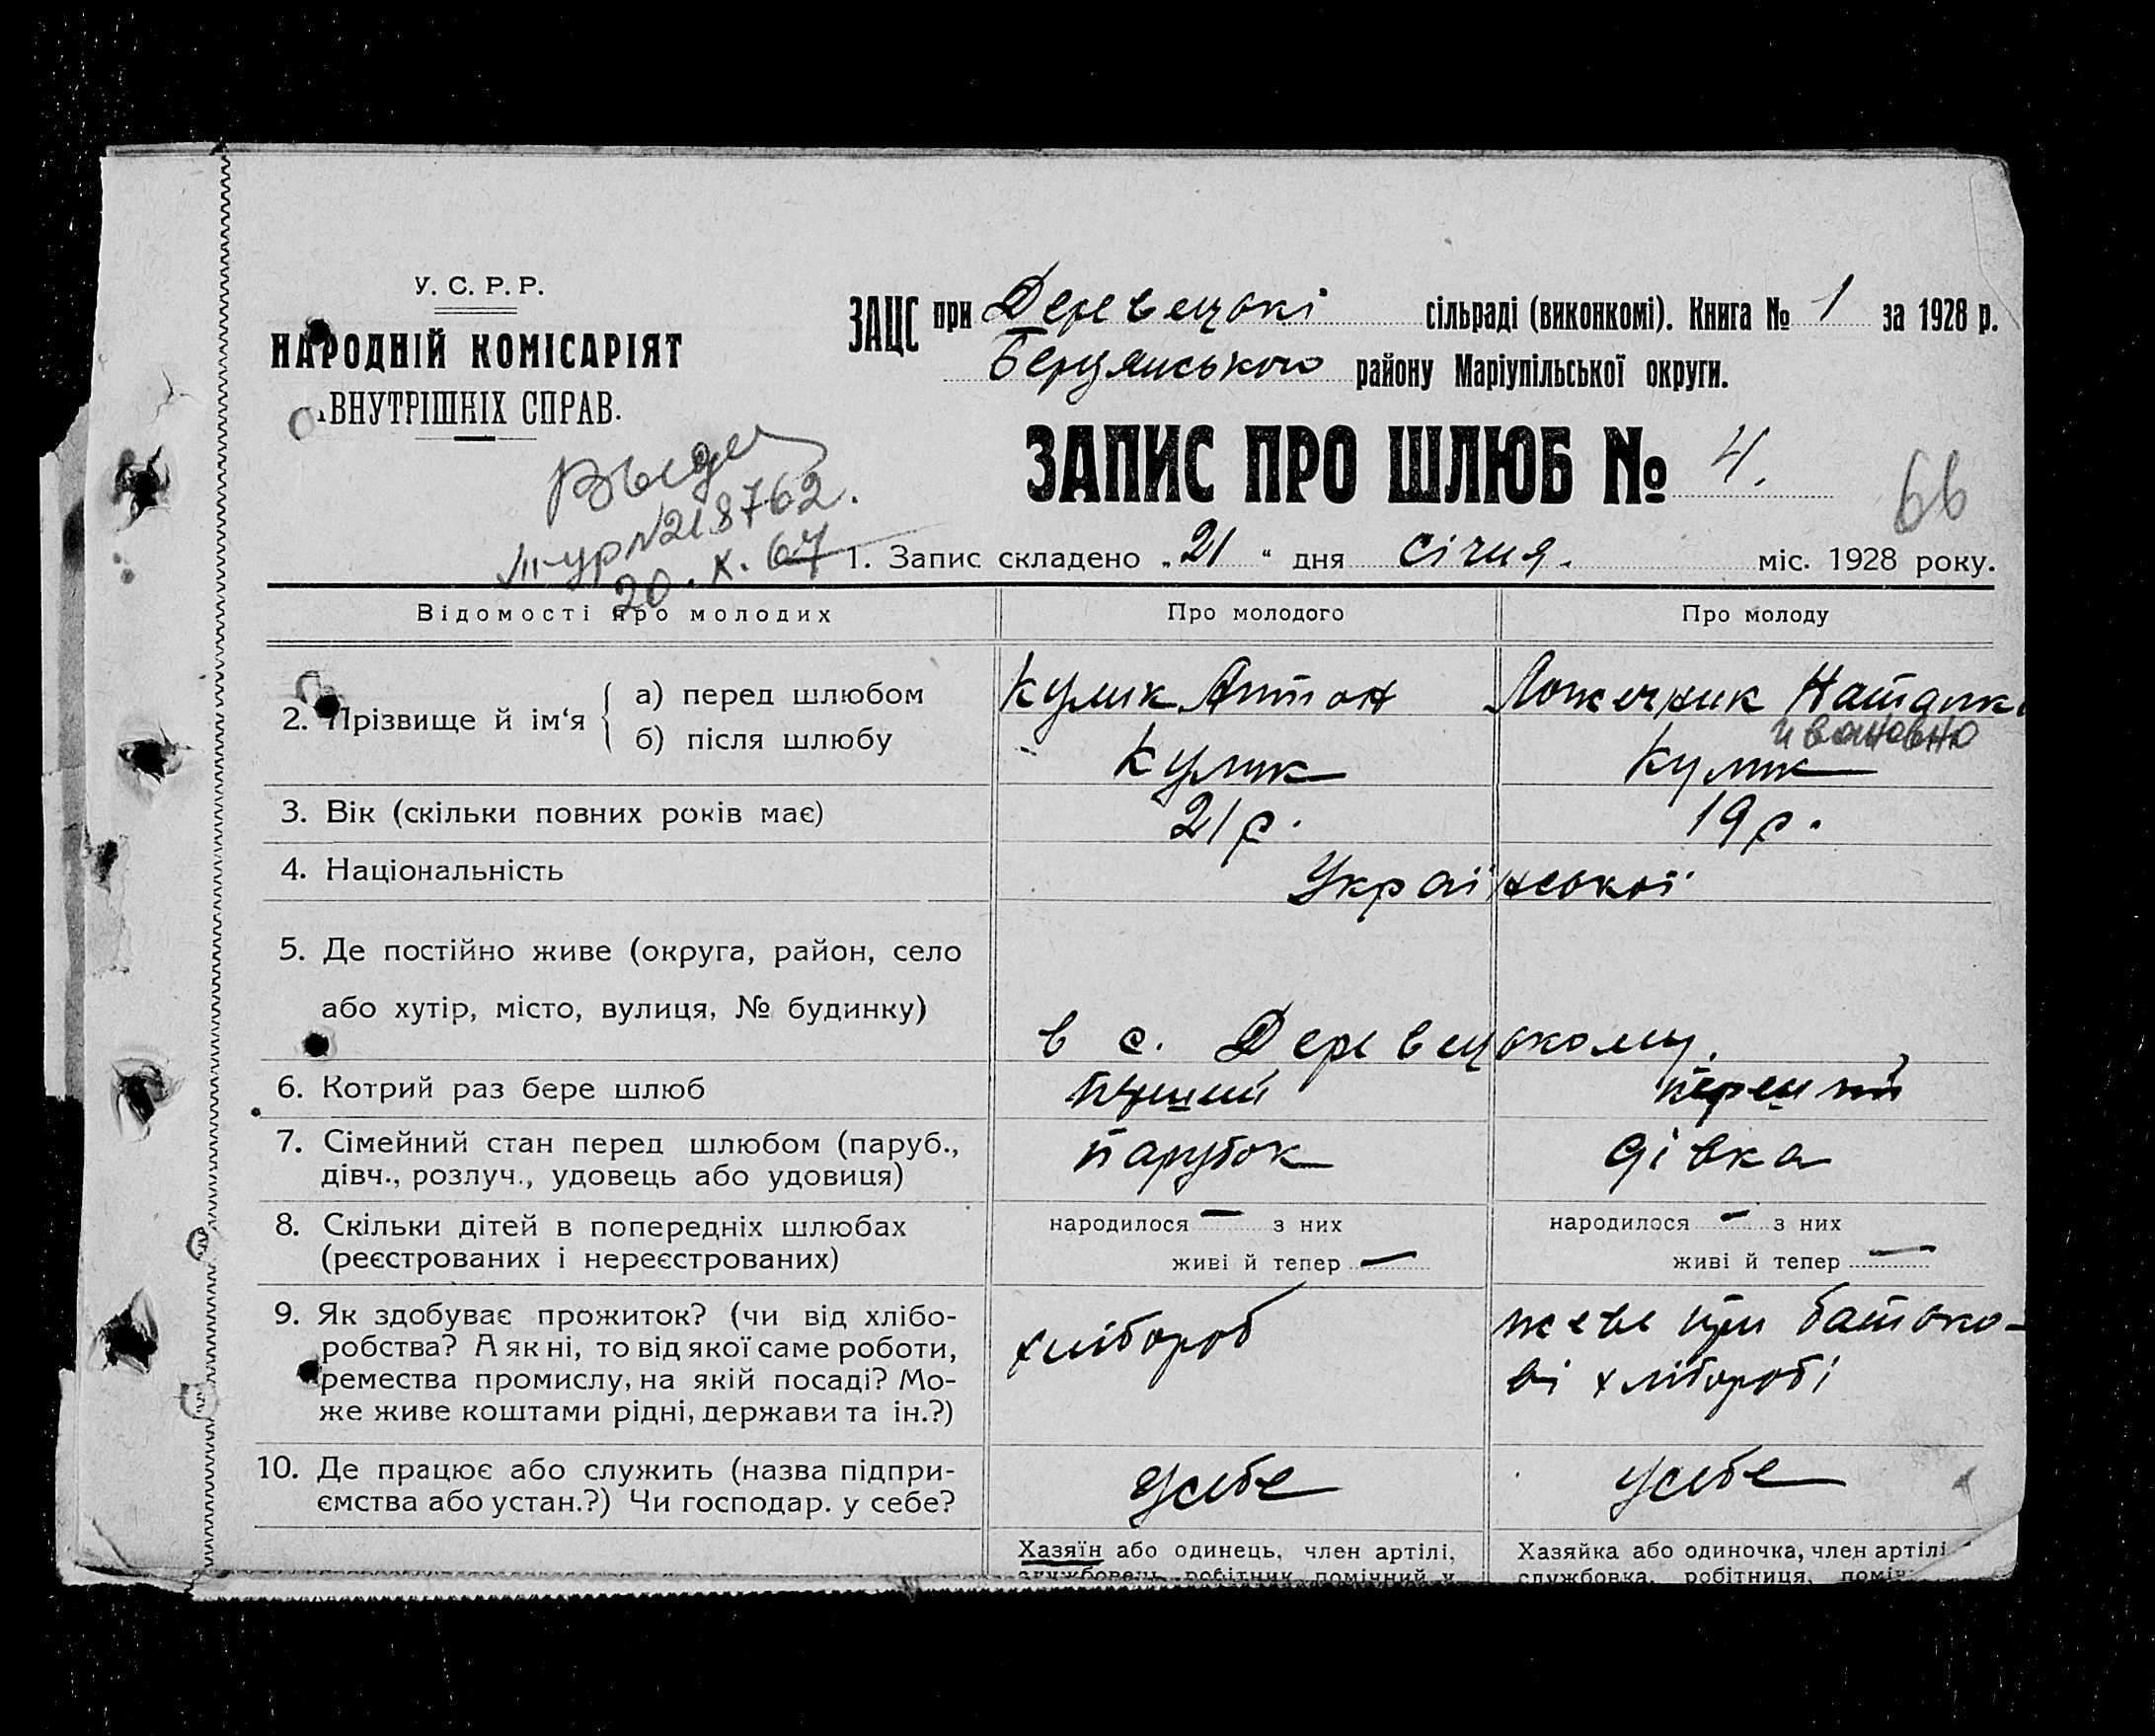 У. С. Р. Р.
НАРОДНІЙ КОМІСАРІЯТ
ВНУТРІШНІХ СПРАВ.
ЗАЦС при Деревецокі сільраді (виконкомі). Книга № 1 за 1928 р.
Берцянського району Маріупільської округи.
ЗАПИС ПРО ШЛЮБ № 4.
66
№218762.
20. X. 67
1. Запис складено „21“ дня січня. міс. 1928 року.
Відомості про молодих Про молодого Про молоду
2. Прізвище й ім‘я а) перед шлюбом Кулик Антон Ложечник Наталка
ивановна
б) після шлюбу Кулик Кулик
3. Вік (скільки повних років має) 21 р. 19 р.
4. Національність Української
5. Де постійно живе (округа, район, село
або хутір, місто, вулиця, № будинку) в с. Деревецокому.
6. Котрий раз бере шлюб перший
7. Сімейний стан перед шлюбом (паруб., парубок дівка
дівч., розлуч., удовець або удовиця)
8. Скільки дітей в попередніх шлюбах народилося — з них народилося — з них
(реєстрованих і нереєстрованих) живі й тепер — живі й тепер —
9. Як здобуває прожиток? (чи від хлібо- хлібороб жеве при батько-
робства? А як ні, то від якої саме роботи, ві хліборобі
ремества промислу, на якій посаді? Мо-
же живе коштами рідні, держави та ін.?)
10. Де працює або служить (назва підпри- усебе усебе
ємства або устан.?) Чи господар. у себе?
Хазяїн або одинець, член артілі, Хазяйка або одиночка, член артілі
службовець, робітник, помічний у службовка, робітниця,